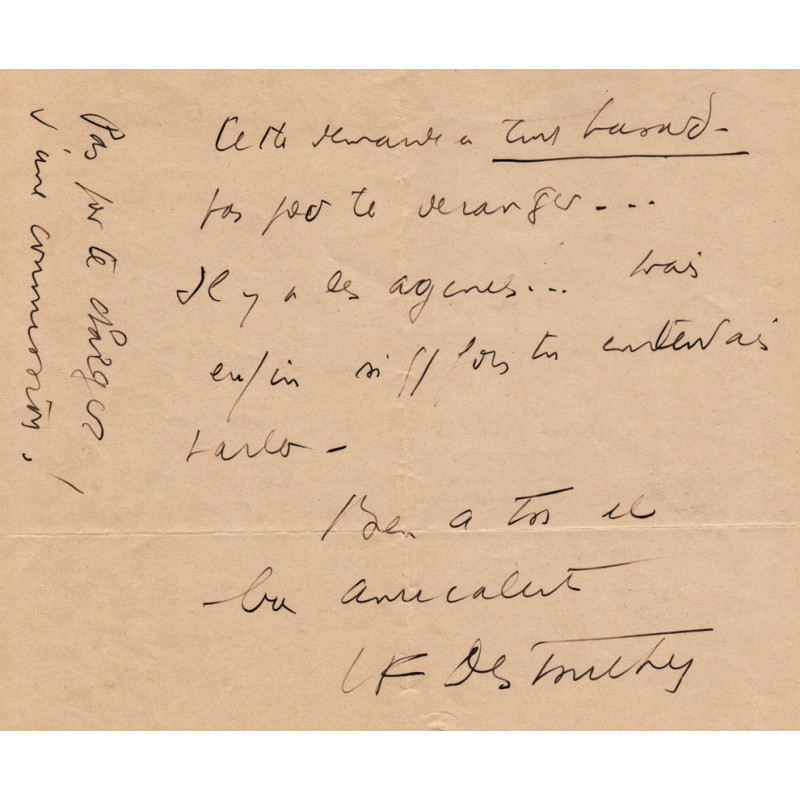 Cette demande à tout hasard -
pas pour te déranger - ...
Il y a les agences... mais
enfin si des fois tu entendais
parler -
Bien à toi et
bien amicalement
LF Destouches
Pas pour te charger
d'une commission !